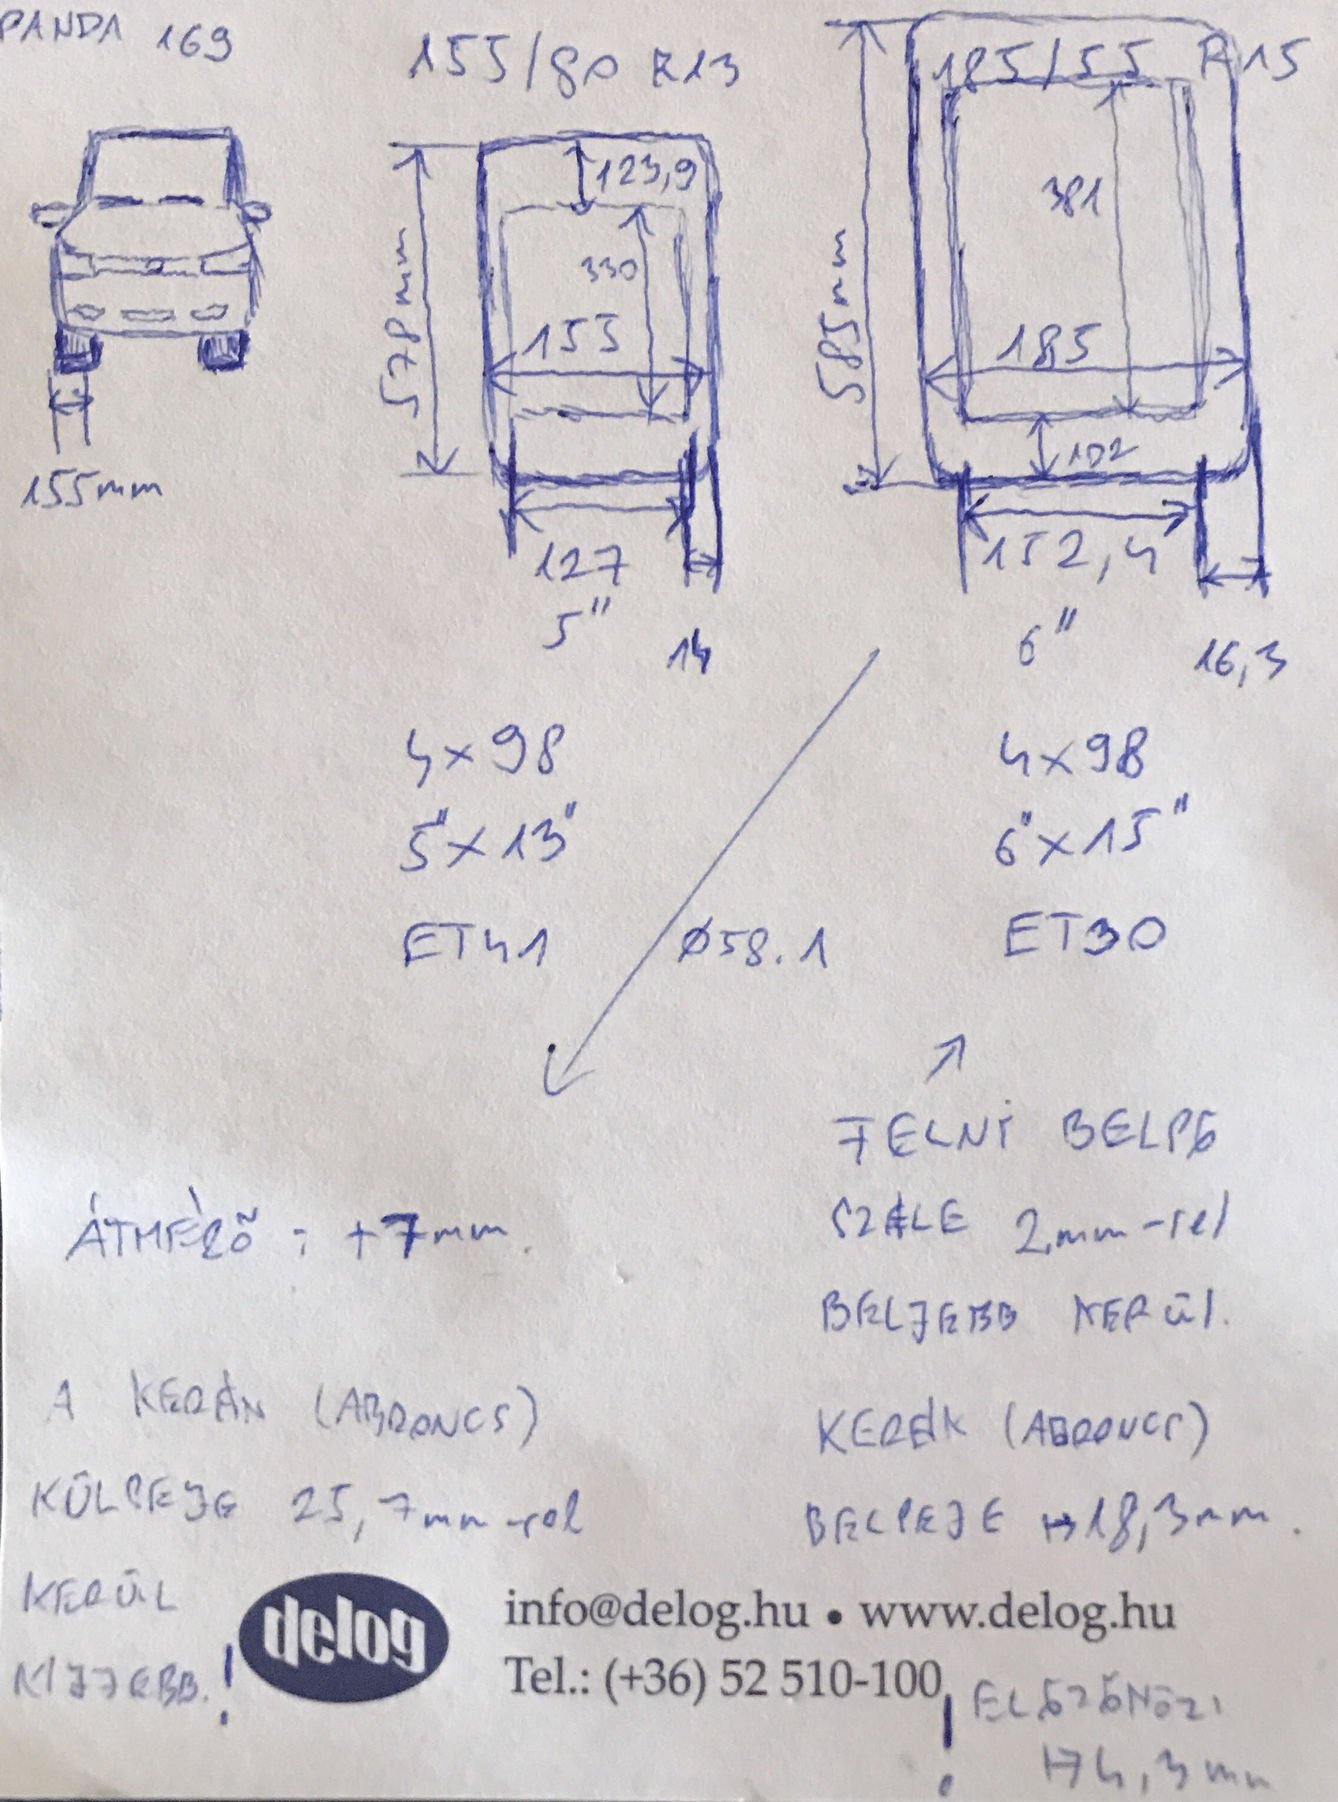 PANDA 169
155/80 R13
185/55 R15
123,9
330
155
578mm
381
185
585mm
102
155mm
127
5"
14
152,4
6"
16,3
4x98
5"x13"
ET41
Ø58.1
4x98
6"x15"
ET30
ÁTMÉRŐ: +7mm.
FELNI BELPŐ
SZÉLE 2mm-rel
BELJEBB KERÜL.
A KERÉK (ABRONCS)
KÜLPEJE 25,7mm-rel
KERÜL
KIJJEBB.!
KERÉK (ABRONCS)
BELPEJE 18,3mm.
delog
info@delog.hu • www.delog.hu
Tel.: (+36) 52 510-100
! ELŐZŐHÖZ:
4,3mm